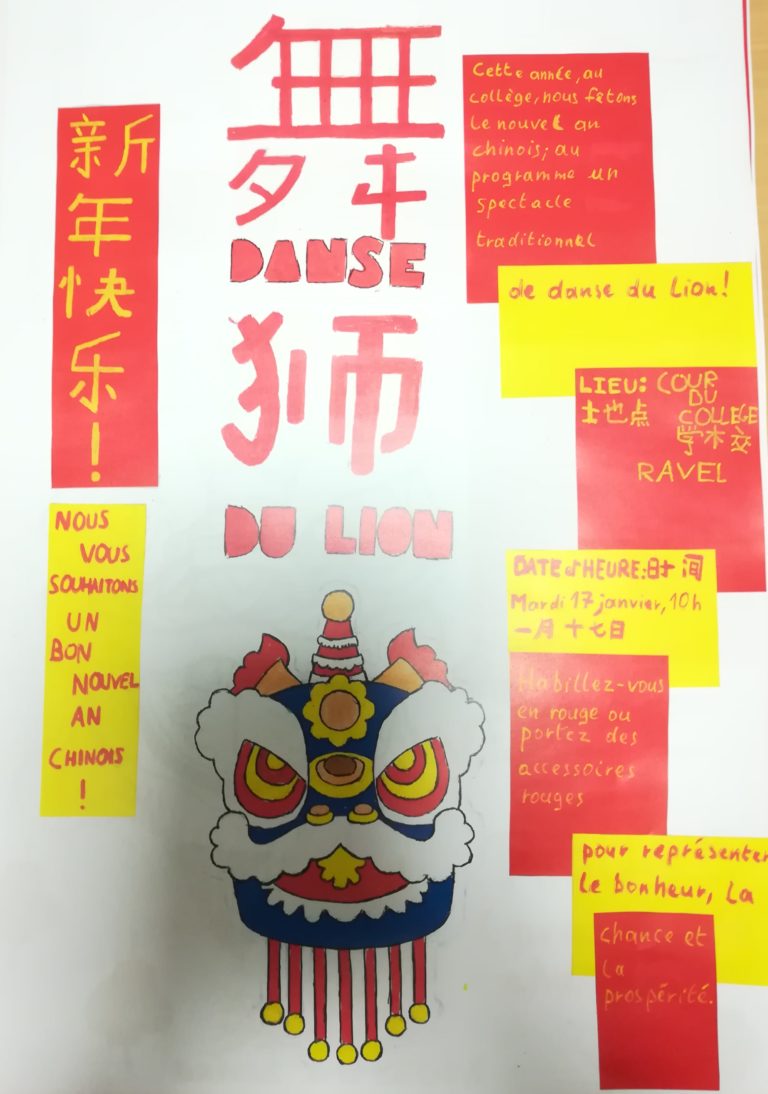 新年快乐!
NOUS
VOUS
SOUHAITONS
UN
BON
NOUVEL
AN
CHINOIS
!
舞
DANSE
狮
DU LION
Cette année, au
collège, nous fêtons
le nouvel an
chinois; au
programme un
spectacle
traditionnel
de danse du Lion!
LIEU: COUR
DU
地点 COLLEGE
学校
RAVEL
DATE et HEURE: 时间
Mardi 17 janvier, 10h
一月十七日
Habillez-vous
en rouge ou
portez des
accessoires
rouges
pour représenter
le bonheur, la
chance et
la
prospérité.